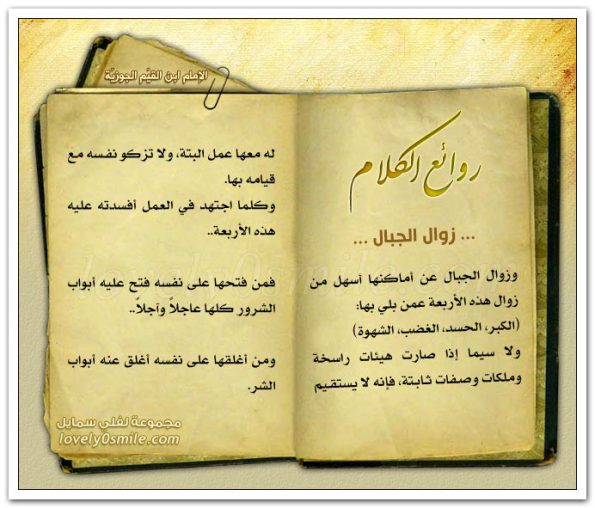 الإمام ابن القيّم الجوزيّة
روائع الكلام
... زوال الجبال ...
وزوال الجبال عن أماكنها أسهل من
زوال هذه الأربعة عمن بلي بها:
(الكبر، الحسد، الغضب، الشهوة)
ولا سيما إذا صارت هيئات راسخة
وملكات وصفات ثابتة، فإنه لا يستقيم
له معها عمل البتة، ولا تزكو نفسه مع
قيامه بها.
وكلما اجتهد في العمل أفسدته عليه
هذه الأربعة..
فمن فتحها على نفسه فتح عليه أبواب
الشرور كلها عاجلاً وآجلاً..
ومن أغلقها على نفسه أغلق عنه أبواب
الشر.
مجموعة لفلي سمايل
lovely0smile.com